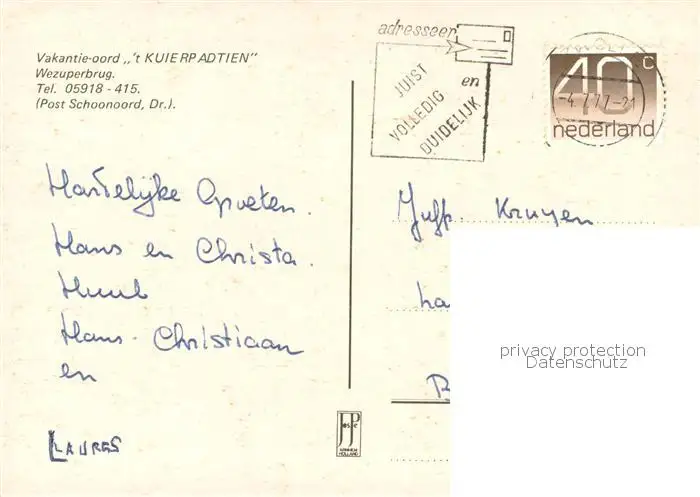 Vakantie-oord „'t KUIERPADTIEN"
Wezuperbrug.
Tel. 05918 - 415.
(Post Schoonoord, Dr.).
adresseer
JUIST
VOLLEDIG
en
DUIDELIJK
40 c
-4.7.77.-21
nederland
Hartelijke Groeten.
Hans en Christa.
Huub
Hans-Christiaan
en
LAURES
Juff. Kruyen
privacy protection
Datenschutz